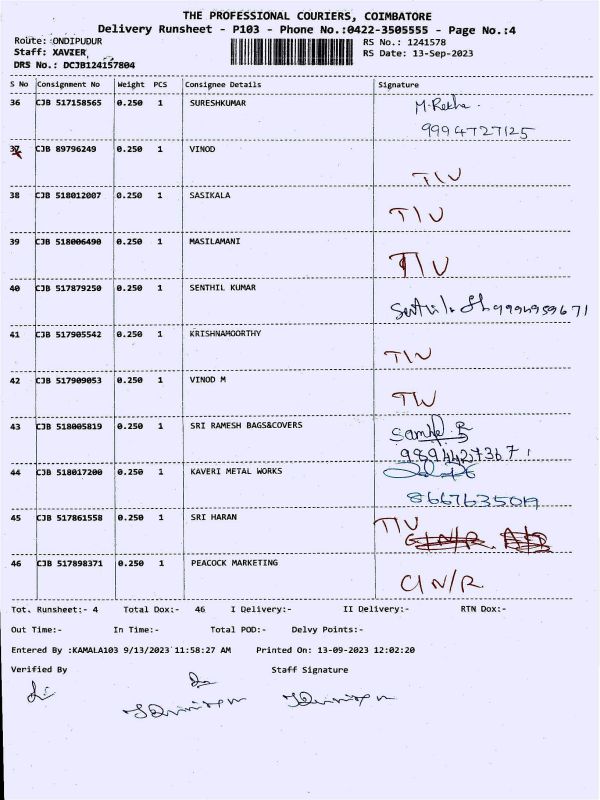 THE PROFESSIONAL COURIERS, COIMBATORE
Delivery Runsheet - P103 - Phone No.:0422-3505555 - Page No.:4
Route: ONDIPUDUR RS No.: 1241578
Staff: XAVIER, RS Date: 13-Sep-2023
DRS No.: DCJB124157804
S No Consignment No Weight PCS Consignee Details Signature
36 CJB 517158565 0.250 1 SURESHKUMAR M. Rekha.
9994727125
37 CJB 89796249 0.250 1 VINOD
TIV
38 CJB 518012007 0.250 1 SASIKALA
TIV
39 CJB 518006490 0.250 1 MASILAMANI
TIV
40 CJB 517879250 0.250 1 SENTHIL KUMAR
41 CJB 517905542 0.250 1 KRISHNAMOORTHY
TIV
42 CJB 517909053 0.250 1 VINOD M
TIV
43 CJB 518005819 0.250 1 SRI RAMESH BAGS&COVERS
9894427367
44 CJB 518017200 0.250 1 KAVERI METAL WORKS
8667635019
45 CJB 517861558 0.250 1 SRI HARAN TIV
46 CJB 517898371 0.250 1 PEACOCK MARKETING
CIN/R
Tot. Runsheet:- 4 Total Dox:- 46 I Delivery:- II Delivery:- RTN Dox:-
Out Time:- In Time:- Total POD:- Delvy Points:-
Entered By :KAMALA103 9/13/2023 11:58:27 AM Printed On: 13-09-2023 12:02:20
Verified By Staff Signature